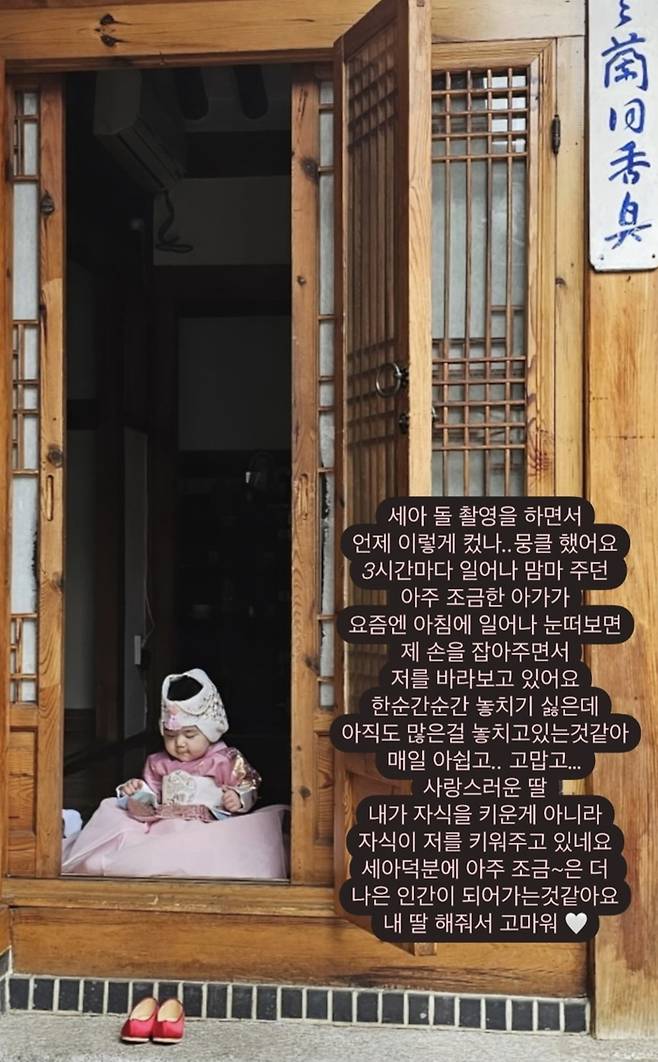 蘭同香臭
세아 돌 촬영을 하면서
언제 이렇게 컸나..뭉클 했어요
3시간마다 일어나 맘마 주던
아주 조금한 아가가
요즘엔 아침에 일어나 눈떠보면
제 손을 잡아주면서
저를 바라보고 있어요
한순간순간 놓치기 싫은데
아직도 많은걸 놓치고있는것같아
매일 아쉽고.. 고맙고...
사랑스러운 딸
내가 자식을 키운게 아니라
자식이 저를 키워주고 있네요
세아덕분에 아주 조금~은 더
나은 인간이 되어가는것같아요
내 딸 해줘서 고마워 🤍